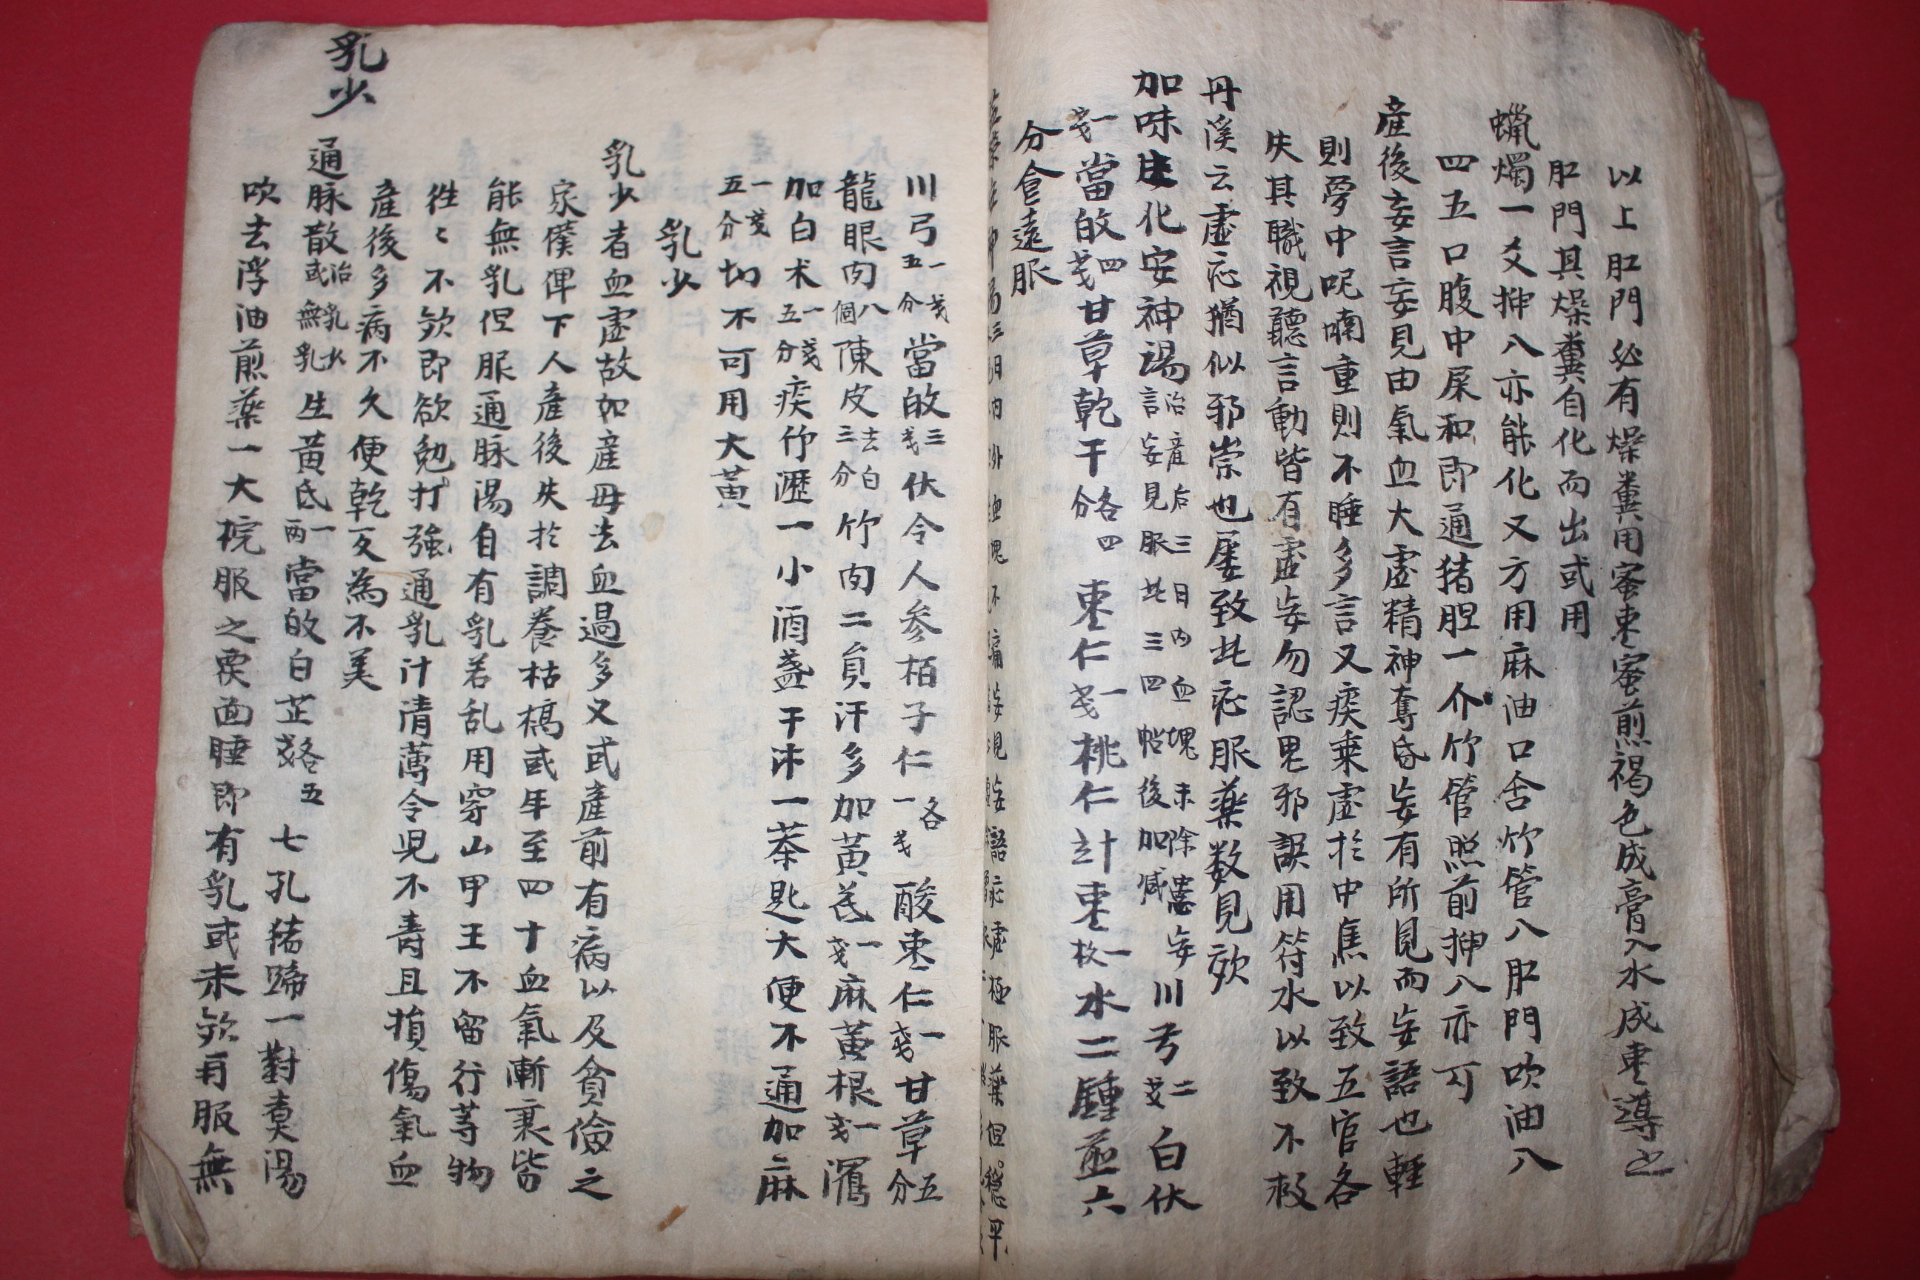 以上肛門必有燥糞用蜜枣蜜煎褐色成膏入水成枣導之
肛門其燥糞自化而出或用
蝋燭一爻抻八亦能化又方用麻油口含竹管八肛門吹油八
四五口腹中屎和即通猪胆一介竹管照前抻八亦可
產後妄言妄見由氣血大虚精神奪昏妄有所見而妄語也輕
則夢中呢喃重則不睡多言又痰乘虚於中焦以致五官各
失其職視聽言動皆有虚妄勿認鬼邪誤用符水以致不救
丹溪云虚症猶似邪祟也屡致此症服藥数見效
加味生化安神湯治產后三日内血塊未除患妄言妄見服此三四帖後加减川芎二戋白伏
一戋當皈四戋甘草乾干各四分枣仁一戋桃仁計枣一枚水二鍾煎六
分食遠服
川弓一戋五分當皈三戋伏令人参栢子仁各一戋酸枣仁一戋甘草五分
龍眼肉八個陳皮去白三分竹肉二貟汗多加黃芪一戋麻黃根一戋瀉
加白术一戋五分痰竹瀝一小酒盞干汁一茶匙大便不通加麻
一戋五分切不可用大黃
乳少
乳少者血虚故如産母去血過多又或産前有病以及貪儉之
家僕俾下人産後失於調養枯槁或年至四十血氣漸衰皆
能無乳但服通脉湯自有乳若乱用穿山甲王不留行等物
徃〻不效即欲勉打強通乳汁清薄令児不青且損傷氣血
産後多病不久便乾反為不美
乳少
通脉散治乳少或無乳生黃芪一兩當皈白芷各五戋七孔猪蹄一對煑湯
吹去浮油煎藥一大梡服之覆面睡即有乳或未效再服無